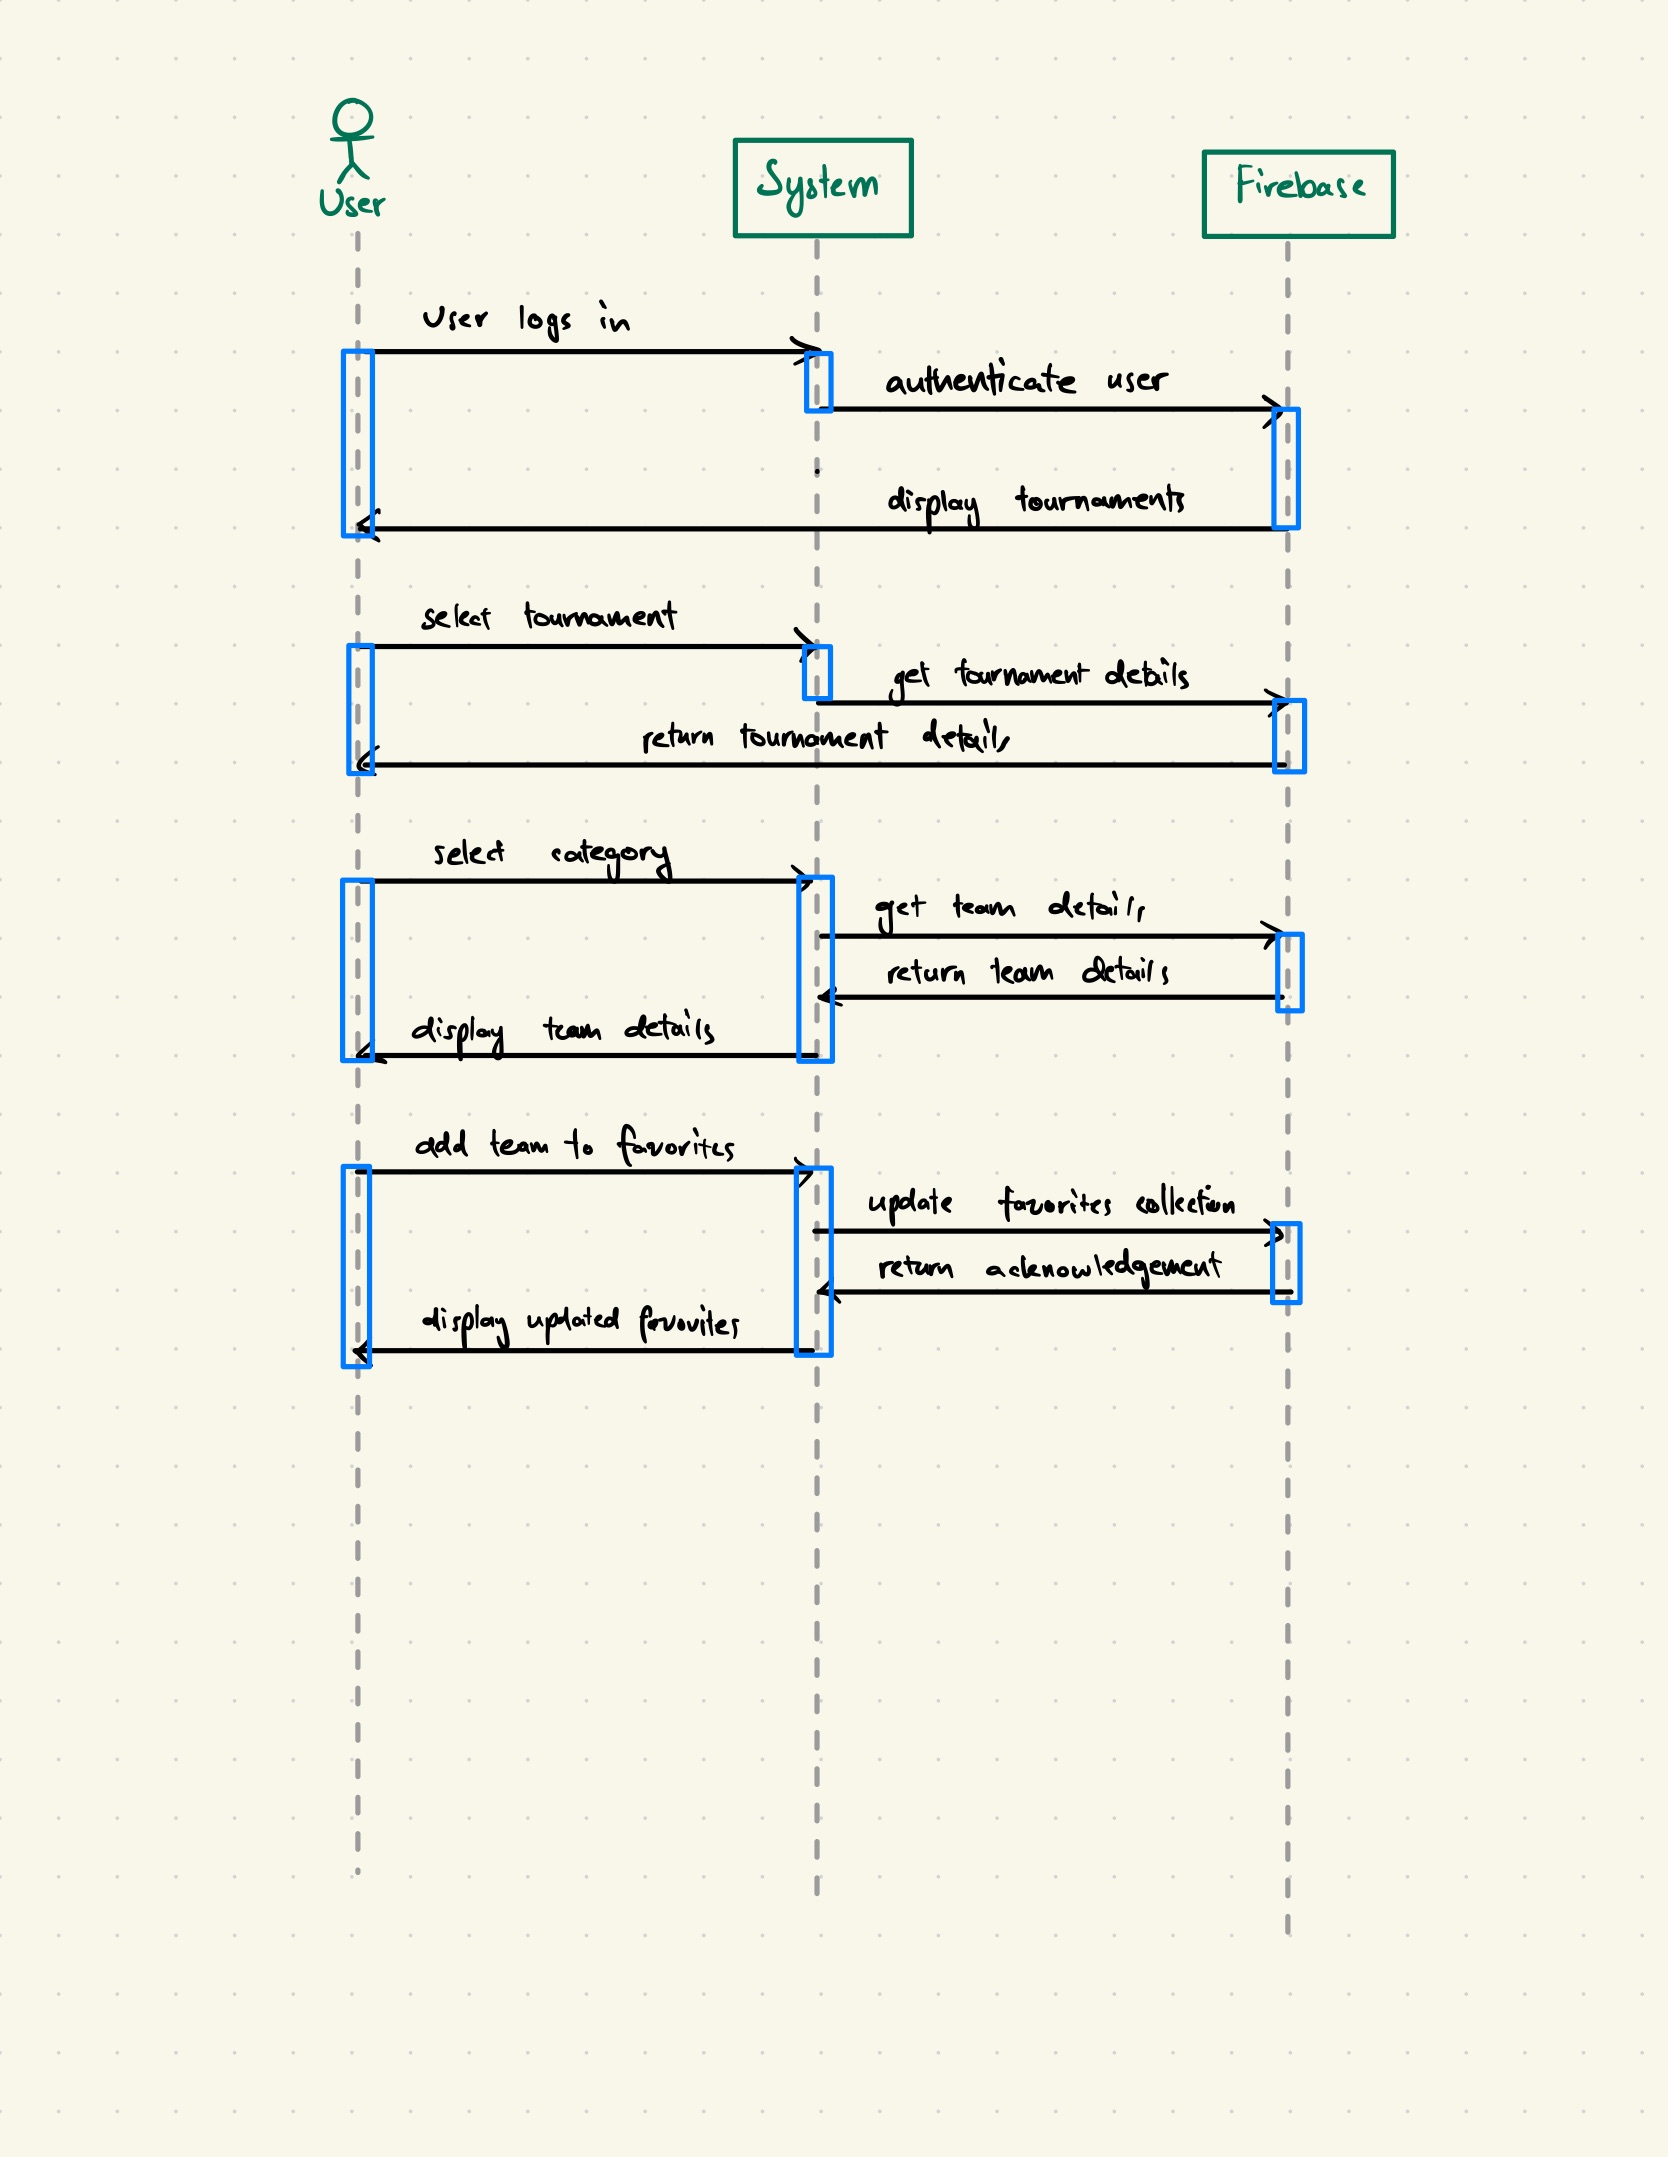 User
System
Firebase
User logs in
authenticate user
display tournaments
select tournament
get tournament details
return tournament details
select category
get team details
return team details
display team details
add team to favorites
update favorites collection
return acknowledgement
display updated favorites